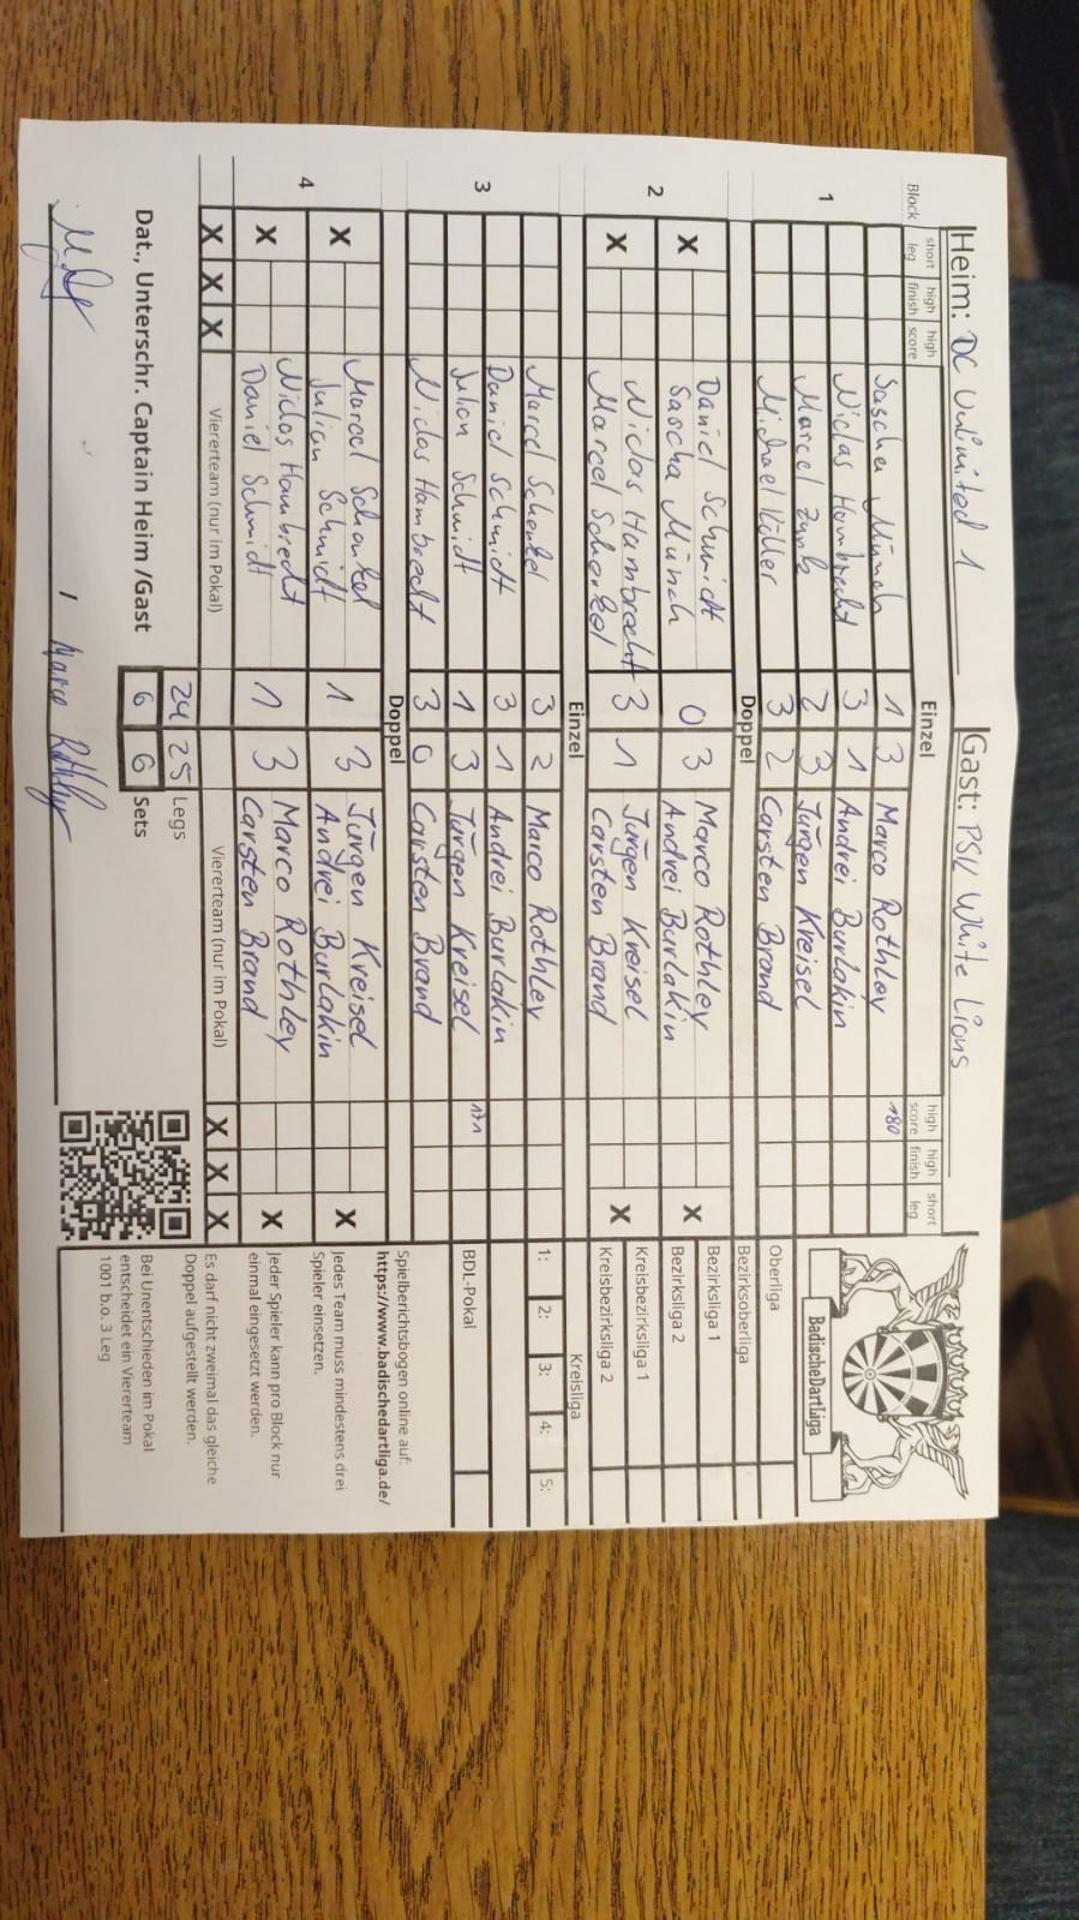 Heim: DC Unlimited 1 Gast: PSV White Lions
Block short leg high finish high score Einzel high score high finish short leg
1
Sascha Münch 1 3 Marco Rothley 180
Niclas Hambrecht 3 1 Andrei Burlakin
Marcel Zynk 2 3 Jürgen Kreisel
Michael Köller 3 2 Carsten Brand
Doppel
2
Daniel Schmidt Marco Rothley
X 0 3 X
Sascha Münch Andrei Burlakin
Niclas Hambrecht Jürgen Kreisel
X 3 1 X
Marcel Schenkel Carsten Brand
Einzel
3
Marcel Schenkel 3 2 Marco Rothley
Daniel Schmidt 3 1 Andrei Burlakin
Julian Schmidt 1 3 Jürgen Kreisel 171
Niclas Hambrecht 3 0 Carsten Brand
Doppel
4
Marcel Schenkel Jürgen Kreisel
X 1 3 X
Julian Schmidt Andrei Burlakin
Niclas Hambrecht Marco Rothley
X 1 3 X
Daniel Schmidt Carsten Brand
X X X Viererteam (nur im Pokal) Viererteam (nur im Pokal) X X X
24 25 Legs
Dat., Unterschr. Captain Heim /Gast 6 6 Sets
/ Marco Rothley
BadischeDartLiga
Oberliga
Bezirksoberliga
Bezirksliga 1
Bezirksliga 2
Kreisbezirksliga 1
Kreisbezirksliga 2
Kreisliga
1: 2: 3: 4: 5:
BDL-Pokal
Spielberichtsbogen online auf:
https://www.badischedartliga.de/
Jedes Team muss mindestens drei
Spieler einsetzen.
Jeder Spieler kann pro Block nur
einmal eingesetzt werden.
Es darf nicht zweimal das gleiche
Doppel aufgestellt werden.
Bei Unentschieden im Pokal
entscheidet ein Viererteam
1001 b.o. 3 Leg